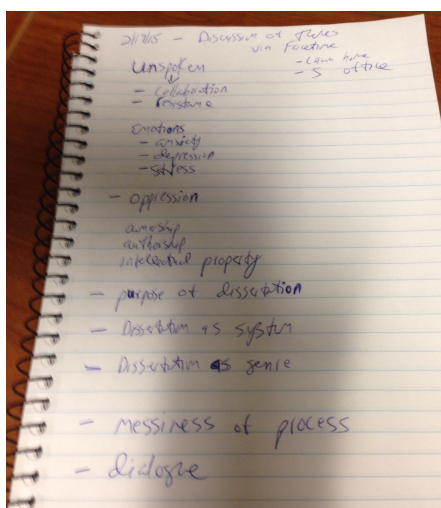 2/17/15 – Discussion of Themes
via Facetime
- Laura home
- S office
Unspoken
- Collaboration
- resistance
Emotions
- anxiety
- depression
- stress
- oppression
ownership
authorship
intellectual property
- purpose of dissertation
- Dissertation as system
- Dissertation as genre
- messiness of process
- dialogue